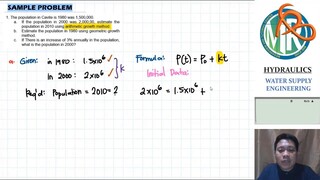 SAMPLE PROBLEM
1. The population in Cavite is 1980 was 1,500,000.
a. If the population in 2000 was 2,000,00, estimate the
population in 2010 using arithmetic growth method.
b. Estimate the population in 1980 using geometric growth
method
c. If there is an increase of 1% annually in the population,
what is the population in 2000?
a. Given: in 1980: 1.5x10⁶ ✓
in 2000: 2x10⁶ ✓
k
Req'd: Population = 2010 = ?
Formula: P(t) = P₀ + kt
Initial Data:
2x10⁶ = 1.5x10⁶ +
HYDRAULICS
WATER SUPPLY
ENGINEERING